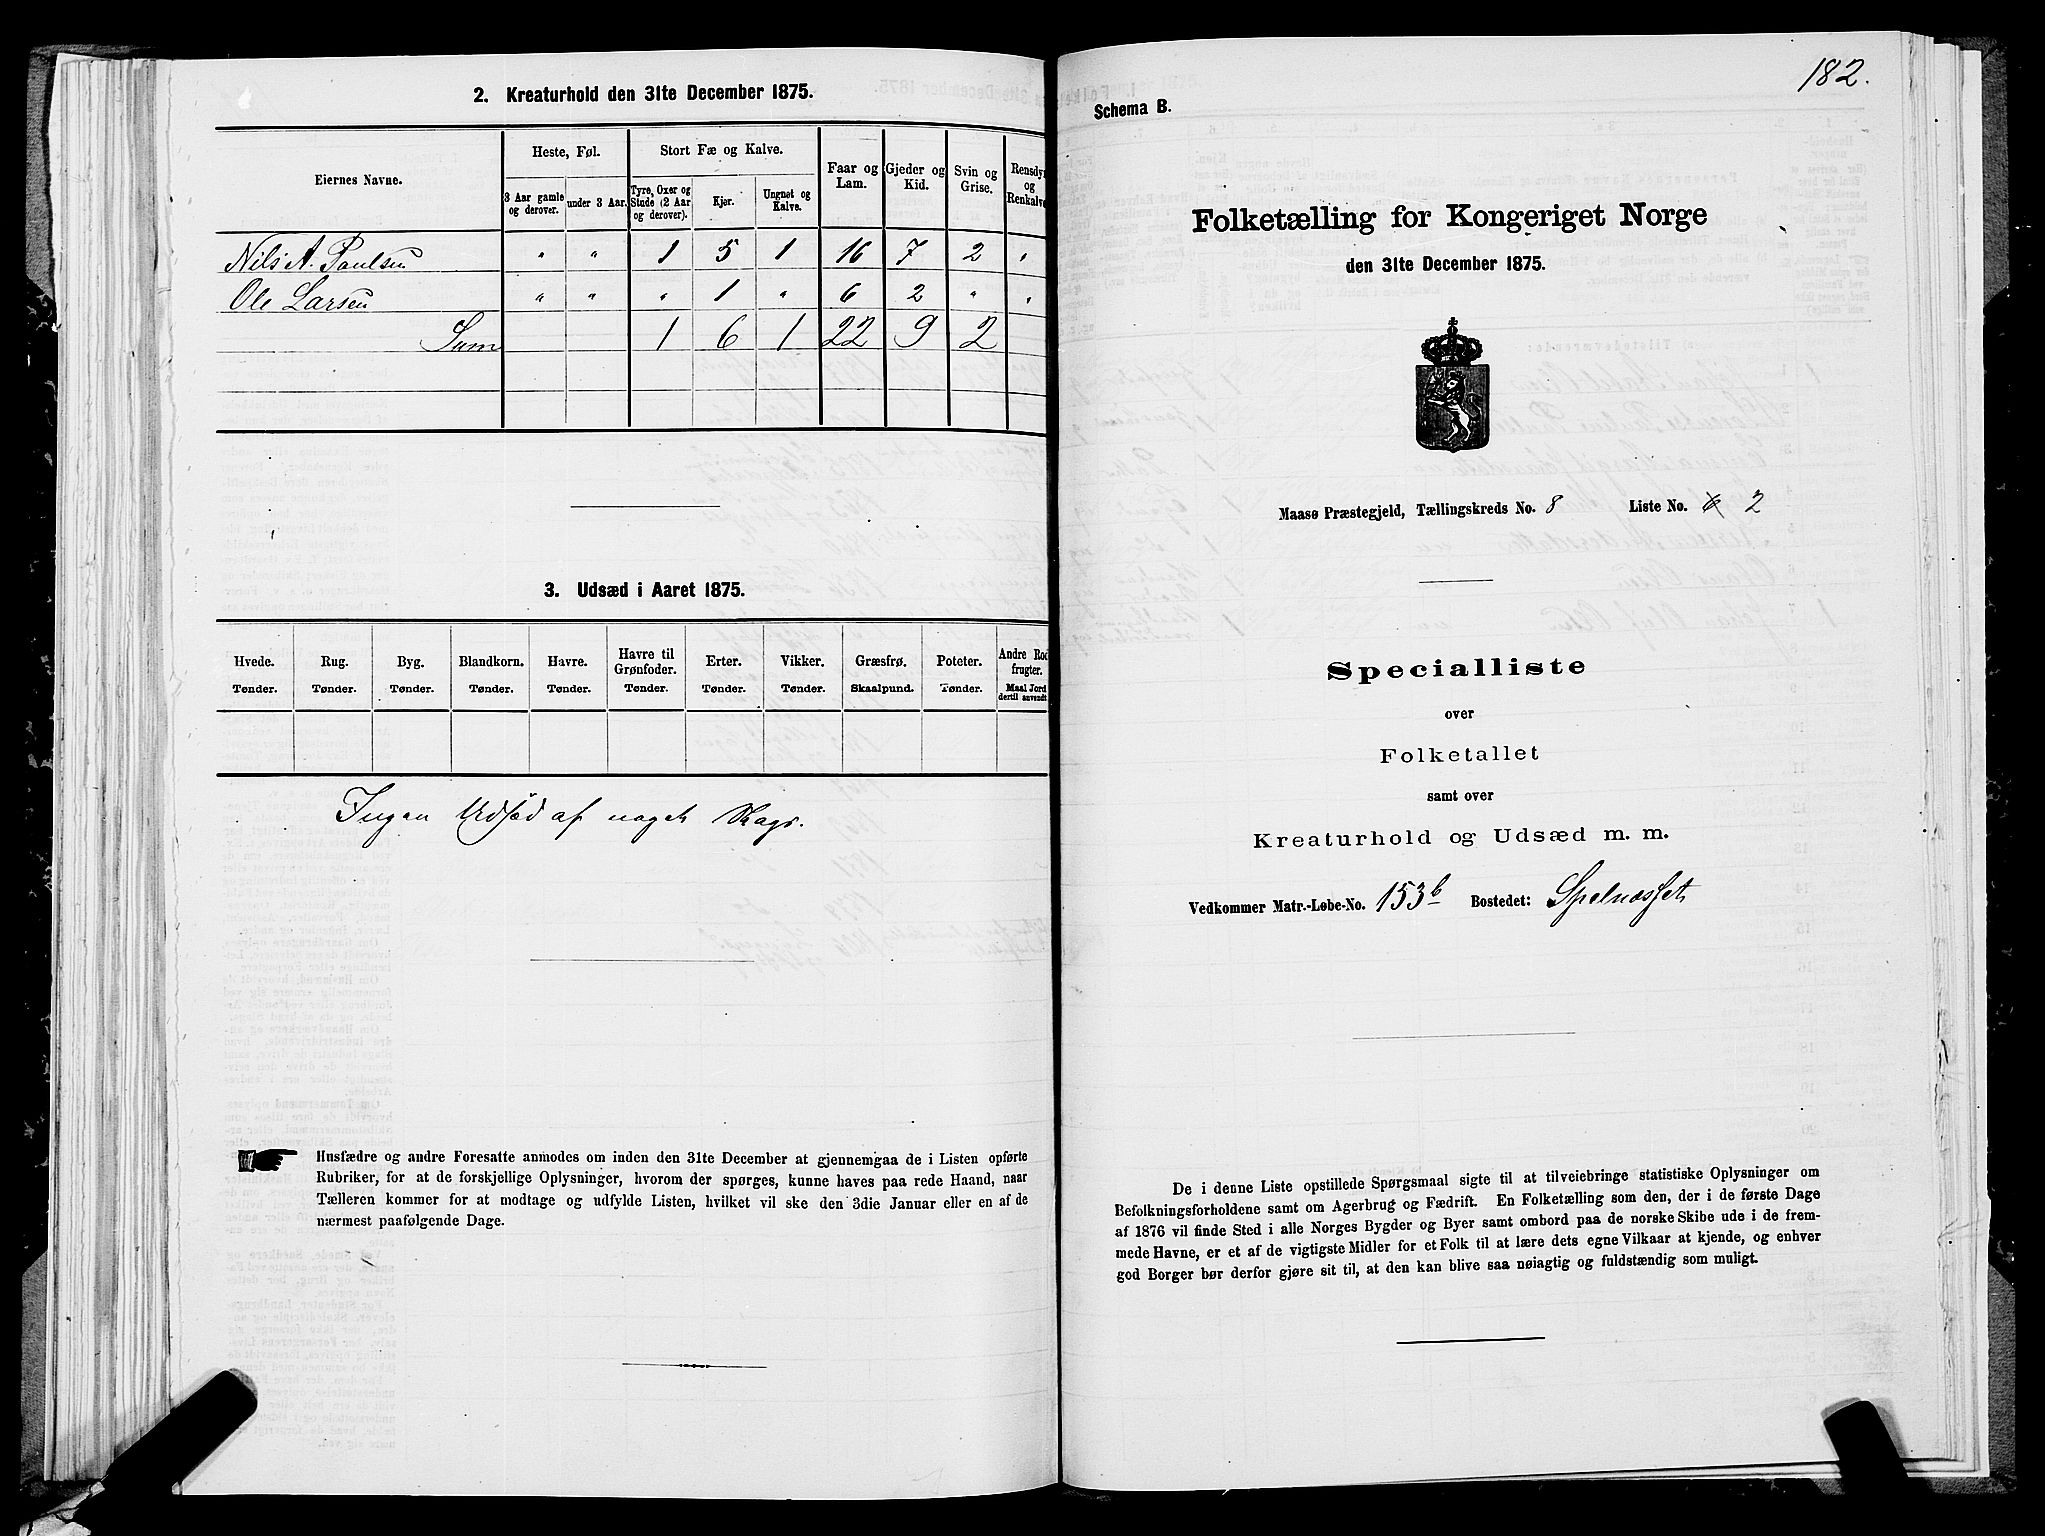 2. Kreaturhold den 31te December 1875.
Eiernes Navne.
Heste, Føl.
Stort Fæ og Kalve.
Faar og Lam.
Gjeder og Kid.
Svin og Grise.
Rensdyr og Renkalve
3 Aar gamle og derover.
under 3 Aar.
Tyre, Oxer og Stude (2 Aar og derover).
Kjør.
Ungnøt og Kalve.
Nils A. Paulsen " " 1 5 1 16 7 2 "
Ole Larsen " " " 1 " 6 2 " "
Sum 1 6 1 22 9 2
3. Udsæd i Aaret 1875.
Hvede. Rug. Byg. Blandkorn. Havre. Havre til Grønfoder. Erter. Vikker. Græsfrø. Poteter. Andre Rodfrugter.
Tønder. Tønder. Tønder. Tønder. Tønder. Tønder. Tønder. Tønder. Skaalpund. Tønder. Maal Jord dertil anvendt
Ingen Udsød af noget Slags.
Husfædre og andre Foresatte anmodes om inden den 31te December at gjennemgaa de i Listen opførte
Rubriker, for at de forskjellige Oplysninger, hvorom der spørges, kunne haves paa rede Haand, naar
Tælleren kommer for at modtage og udfylde Listen, hvilket vil ske den 3die Januar eller en af de
nærmest paafølgende Dage.
182.
Schema B.
Folketælling for Kongeriget Norge
den 31te December 1875.
Maasø Præstegjeld, Tællingskreds No. 8 Liste No. 2
Specialliste
over
Folketallet
samt over
Kreaturhold og Udsæd m. m.
Vedkommer Matr.-Løbe-No. 153b Bostedet: Spelnæsset
De i denne Liste opstillede Spørgsmaal sigte til at tilveiebringe statistiske Oplysninger om
Befolkningsforholdene samt om Agerbrug og Fædrift. En Folketælling som den, der i de første Dage
af 1876 vil finde Sted i alle Norges Bygder og Byer samt ombord paa de norske Skibe ude i de frem-
mede Havne, er et af de vigtigste Midler for et Folk til at lære dets egne Vilkaar at kjende, og enhver
god Borger bør derfor gjøre sit til, at den kan blive saa nøiagtig og fuldstændig som muligt.